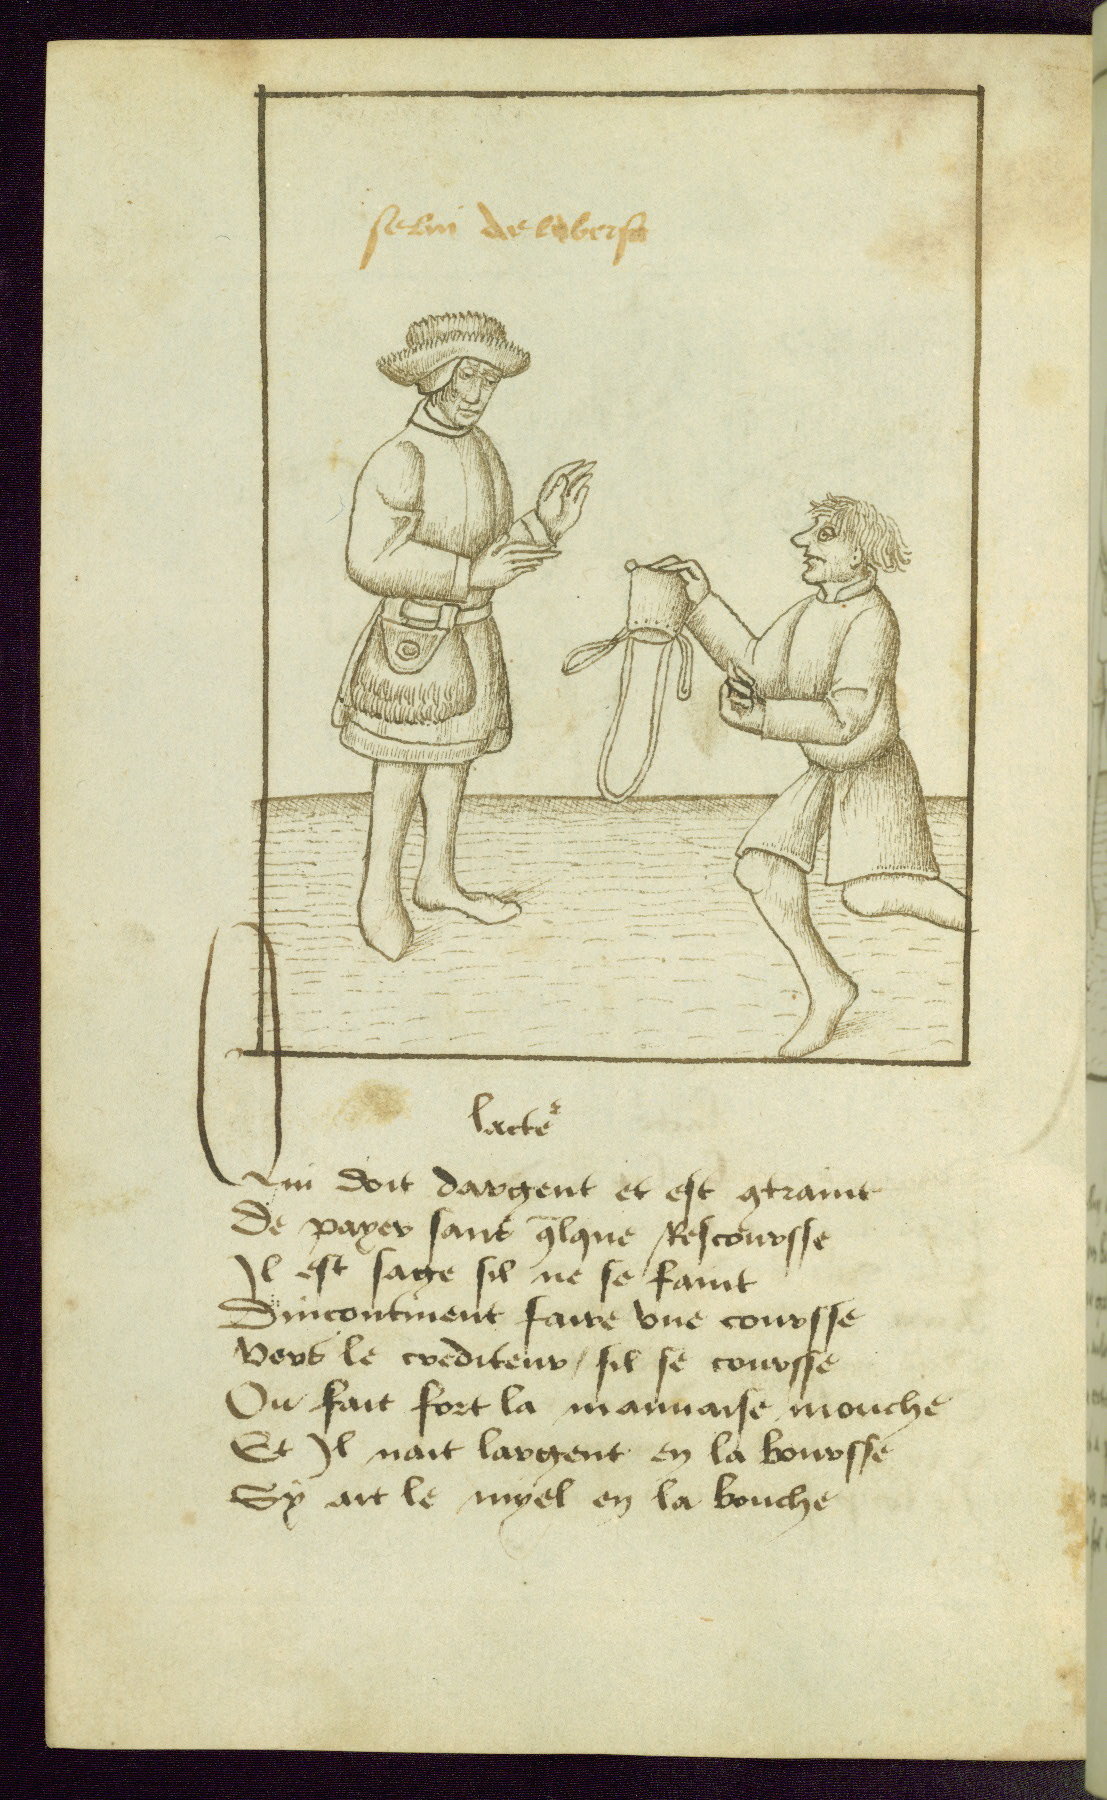 selui de
lacteur
Qui doit dargent et est gtraint
De payer sans qlque Rescoursse
Il est sage sil ne se faint
Dincontinent faire vne coursse
Vers le crediteur / sil se coursse
Ou fait fort la mauuaise mouche
Et Il nait largent en la boursse
Sy ait le myel en la bouche